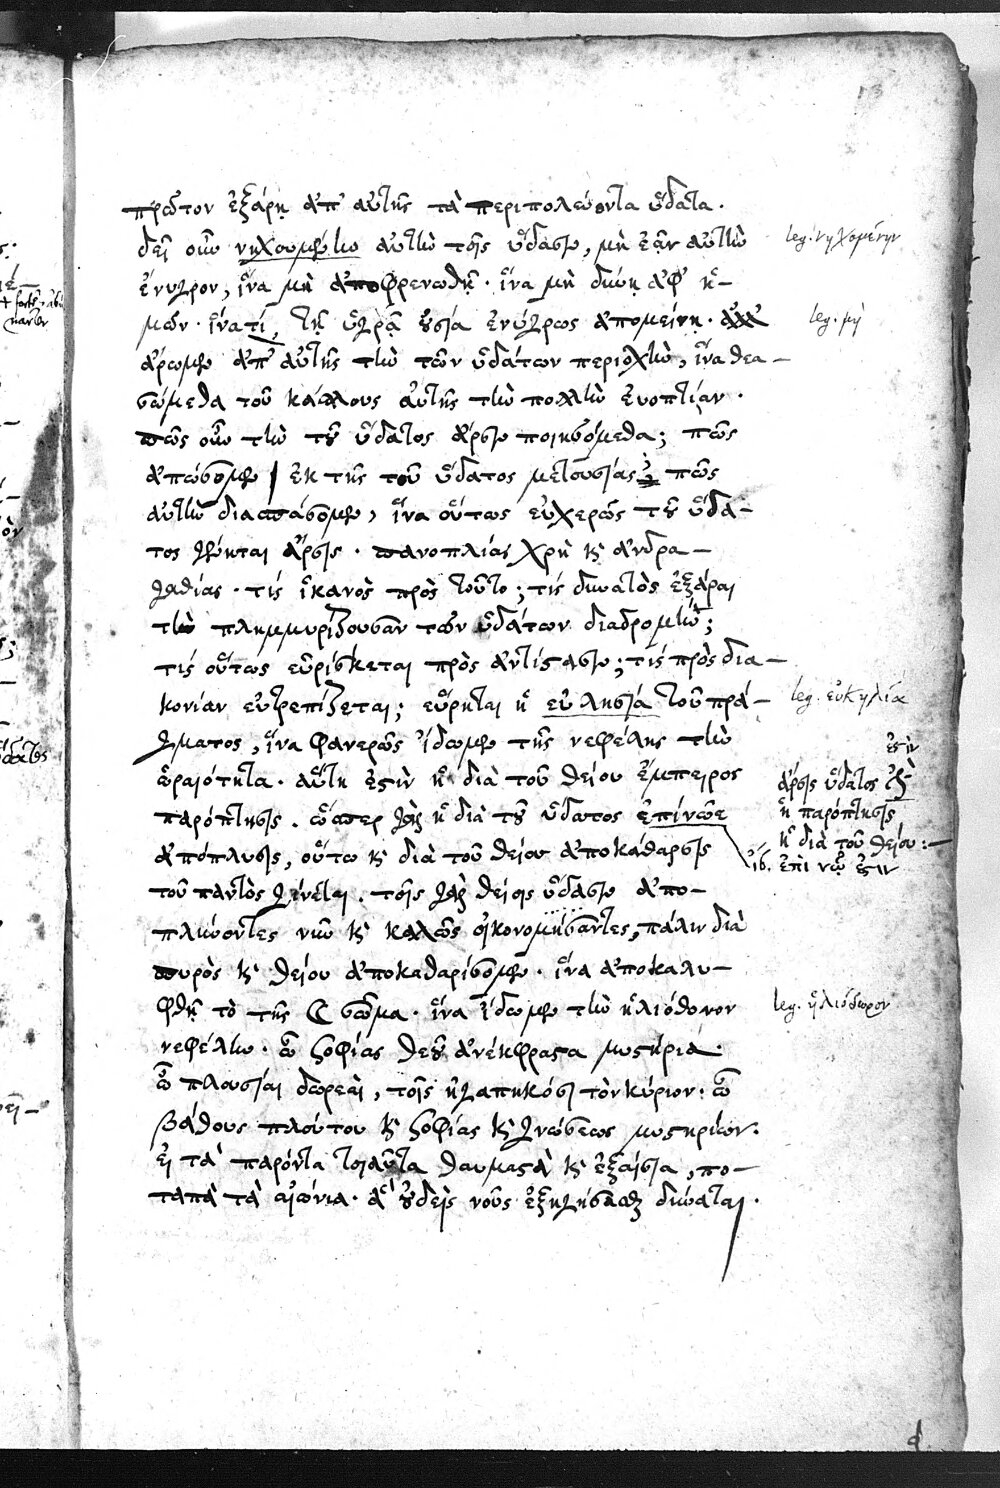 13
πρῶτον ἐξάρῃ ἀπ' αὐτῆς τὰ περιπολεύοντα ὕδατα.
δεῖ οὖν νηχουμένην αὐτὴν τοῖς ὕδασιν, μὴ ἐᾶν αὐτὴν leg. νηχομένην
ἔνυδρον, ἵνα μὴ ἀποφρενωθῇ. ἵνα μὴ δύνῃ ἀφ' ἡ-
μῶν. ἵνα τί, τῇ ὑδρᾷ οὐσία ἐνύδρως ἀπομείνῃ. leg. μή
ἄρωμεν ἀπ' αὐτῆς τὴν τῶν ὑδάτων περιοχὴν, ἵνα θεα-
σώμεθα τοῦ κάλλους αὐτῆς τὴν πολλὴν ἐνοπτίαν.
πῶς οὖν τὴν τοῦ ὕδατος ἄρσιν ποιησόμεθα; πῶς
ἀπώσομεν ἐκ τῆς τοῦ ὕδατος μετουσίας; πῶς
αὐτὴν διασπάσομεν, ἵνα οὕτως εὐχερῶς τοῦ ὕδα-
τος γένηται ἄρσις. πανοπλίας χρὴ καὶ ἀνδρα-
γαθίας. τίς ἱκανὸς πρὸς τοῦτο; τίς δυνατὸς ἐξάραι
τὴν πλημμυρίζουσαν τῶν ὑδάτων διαδρομὴν;
τίς οὕτως εὑρίσκεται πρὸς ἀντίστασιν; τίς πρὸς δια-
κονίαν εὐτρεπίζεται; εὕρηται ἡ εὐλησία τοῦ πρά- leg. εὐκηλία
γματος, ἵνα φανερῶς ἴδωμεν τῆς νεφέλης τὴν
ὡραιότητα. αὕτη ἐστὶν ἡ διὰ τοῦ θείου ἔμπειρος
παρόπτησις. ὥσπερ γὰρ ἡ διὰ τοῦ ὕδατος ἐπίνωε
ἀπόπλυσις, οὕτω καὶ διὰ τοῦ θείου ἀποκάθαρσις
τοῦ παντὸς γίνεται. τοῖς γὰρ θείοις ὕδασιν ἀπο-
πλύνοντες νῦν καὶ καλῶς οἰκονομήσαντες, πάλιν διὰ
πυρὸς καὶ θείου ἀποκαθαρίσομεν. ἵνα ἀποκαλυ-
φθῇ τὸ τῆς ☾ σῶμα. ἵνα ἴδωμεν τὴν ἡλιόθονον leg. ἡλιόδωρον
νεφέλην. ὦ σοφίας θεοῦ ἀνέκφραστα μυστήρια.
ὦ πλουσίαι δωρεαὶ, τοῖς ἠγαπηκόσι τὸν κύριον: ὦ
βάθους πλούτου καὶ σοφίας καὶ γνώσεως μυστηρίων.
εἰ τὰ παρόντα τοιαῦτα θαυμαστὰ καὶ ἐξαίσια, πο-
ταπὰ τὰ αἰώνια. ἃ οὐδεὶς νοῦς ἐξηγήσασθαι δύναται.
ἐστὶν
ἄρσις ὕδατος
ἡ παρόπτησις
ἡ διὰ τοῦ θείου:-
ib. ἐπὶ νῷ ἐστιν